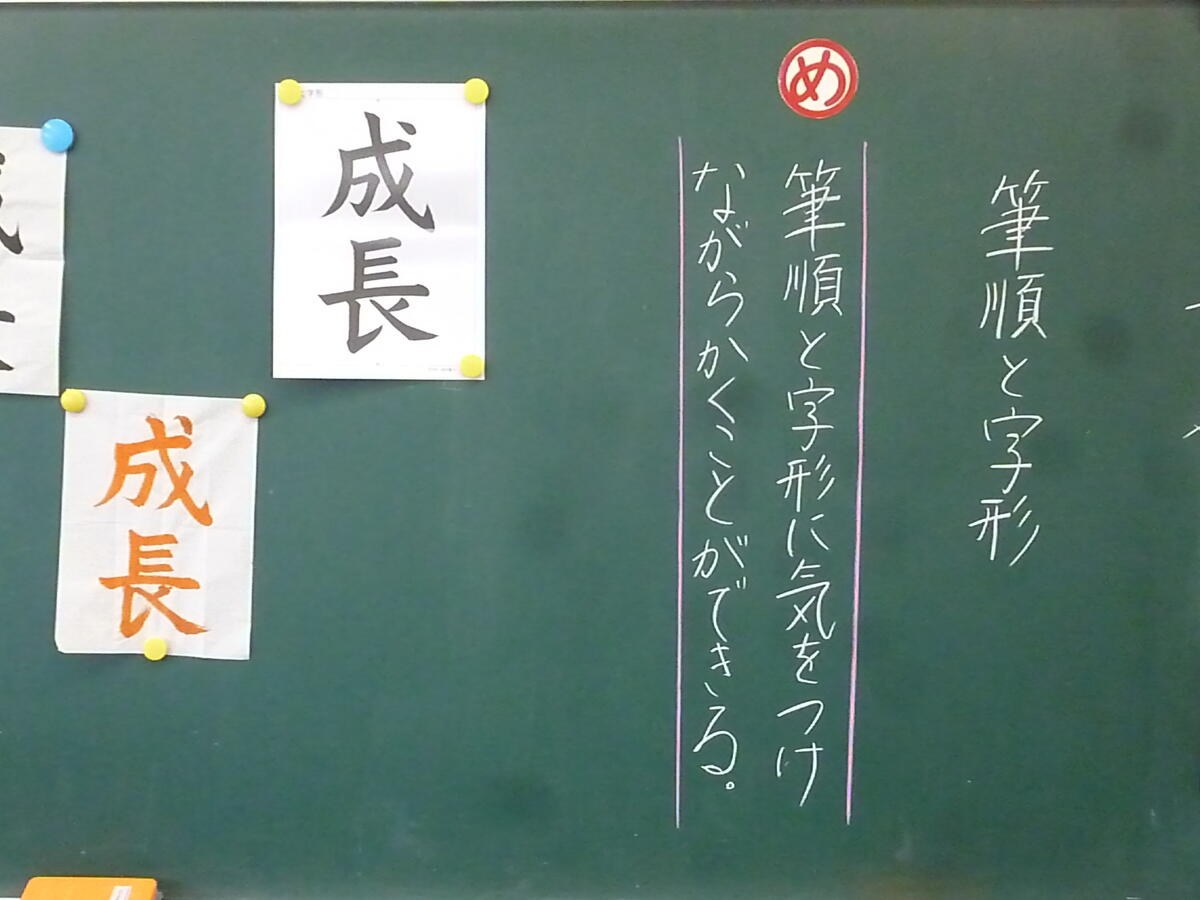 筆順と字形
め
筆順と字形に気をつけ
ながらかくことができる。
成長
成長